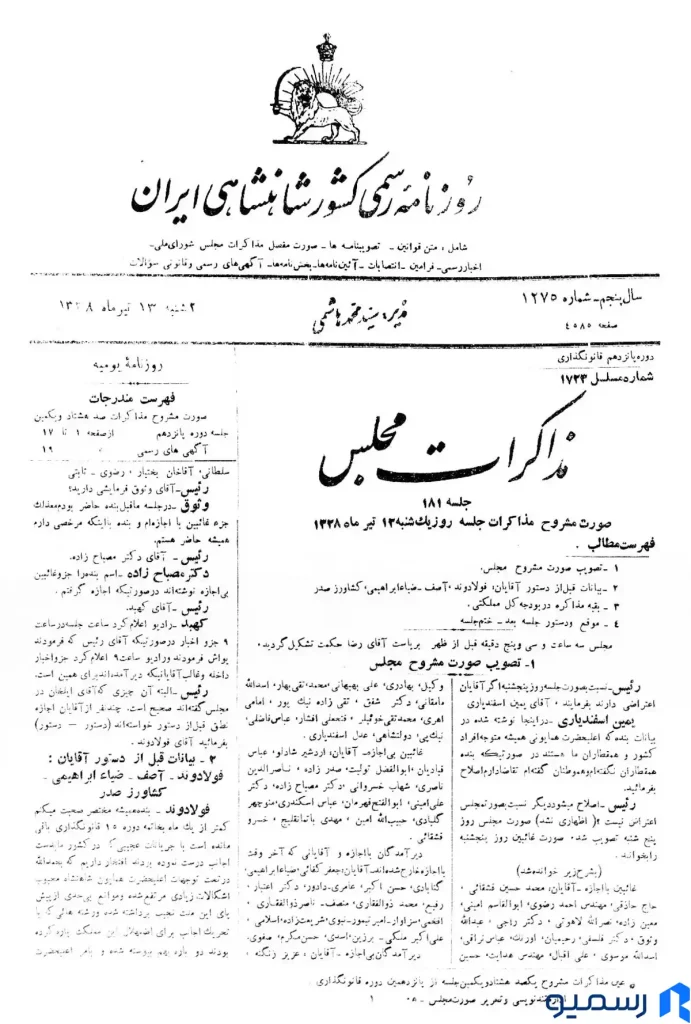 روزنامه رسمی کشور شاهنشاهی ایران
شامل ، متن قوانین - تصویبنامه ها - صورت مفصل مذاکرات مجلس شورای ملی-
اخبار رسمی- فرامین - انتصابات - آئین نامه‌ها- بخش نامه‌ها- آگهی‌های رسمی و قانونی سؤالات
سال پنجم- شماره ۱۲۷۵
صفحه ۴۰۸۵
مدیر: سید محمد هاشمی
۲ شنبه ۱۳ تیر ماه
دوره پانزدهم قانونگذاری
شماره مسلسل ۱۷۲۳
مذاکرات مجلس
جلسه ۱۸۱
صورت مشروح مذاکرات جلسه روز یك شنبه ۱۲ تیر ماه ۱۳۲۸
فهرست مطالب .
۱ - تصویب صورت مشروح مجلس.
۲ - بیانات قبل از دستور آقایان، فولادوند، آصف - ضیاء ابراهیمی، کشاورز صدر
۳ - بقیه مذاکره در بودجه کل مملکتی .
۴ - موقع و دستور جلسه بعد - ختم جلسه
مجلس سه ساعت و سی وپنج دقیقه قبل از ظهر بریاست آقای رضا حکمت تشکیل گردید.
۱- تصویب صورت مشروح مجلس
رئیس- نسبت بصورت جلسه روز پنجشنبه اگر آقایان
اعتراضی دارند بفرمایند . آقای یمین اسفندیاری
یمین اسفندیاری - در اینجا نوشته شده در
بیانات بنده که اعلیحضرت همایونی همیشه متوجه افراد
کشور و همقطاران ما هستند در صورتیکه بنده
همقطاران نگفته‌ام وهموطنان گفته‌ام تقاضا دارم اصلاح
بفرمائید.
رئیس - اصلاح میشود دیگر نسبت بصورتمجلس
اعتراض نیست ؟( اظهاری نشد) صورت مجلس روز
پنج شنبه تصویب شد. صورت غائبین روز پنجشنبه
را بخوانند.
(بشرح زیر خوانده شد)
غائبین با اجازه- آقایان، محمد حسین قشقائی ،
حاج حاذقی، مهندس احمد رضوی، ابوالقاسم امینی،
معین زاده، نصرالله لاهوتی ، دکتر راجی، عبدالله
وثوق، دکتر فلسفی، رحیمیان، اورنك، عباس نراقی،
اسدالله موسوی ، علی اقبال، مهندس هدایت، حسین
وکیل، بهادری، علی بهبهانی، محمد تقی بهار، اسدالله
مامقانی، دکتر شفق ، تقی زاده نیك پور ، امامی
اهری، محمد تقی خوئیلر ، فتحعلی افشار، عباس فاضلی،
نیك پی، دولتشاهی، عدل اسفندیاری.
غائبین بی‌اجازه- آقایان، اردشیر شادلو، عباس
قبادیان، ابوالفضل تولیت، صدر زاده ، ناصرالدین
ناصری، شهاب خسروانی، دکتر مصباح زاده، دکتر
علی امینی، ابوالفتح قهرمان، عباس اسکندری، منوچهر
گلبادی، حبیب الله امین ، مهدی باتمانقلیج، خسرو
قشقائی .
دیر آمدگان بااجازه و آقایانی که آخر وقت
بااجازه خارج شده‌اند، آقایان، جعفر کفائی، ضیاء ابراهیمی،
گنابادی، حسن اکبر، عامری، دادور، دکتر اعتبار،
رفیع، محمد ذوالفقاری، منصف، ناصر ذوالفقاری،
افخمی، سزاوار، امیر تیمور، نبوی، شریعت زاده، اسلامی،
علی اکبر ملکی، برزین، اسدی، حسن مکرم، صفوی.
دیر آمدگان بی‌اجازه - آقایان، عزیز زنگنه ،
روزنامهٔ یومیه
فهرست مندرجات
صورت مشروح مذاکرات صد هشتاد ویکمین
جلسه دوره پانزدهم از صفحه ۱ تا ۱۷
آگهی های رسمی ۱۹
سلطانی، آقاخان بختیار ، رضوی - ثابتی
رئیس- آقای وثوق فرمایشی دارید؟
وثوق - در جلسه ماقبل بنده حاضر بودم معذلك
جزء غائبین با اجازه‌ام و بنده بااینکه مرخصی دارم
همیشه حاضر هستم.
رئیس - آقای دکتر مصباح زاده.
دکتر مصباح زاده - اسم بنده را جزو غائبین
بی‌اجازه نوشته‌اند در صورتیکه اجازه گرفتم .
رئیس - آقای کهبد.
کهبد - رادیو اعلام کرد ساعت جلسه در ساعت
۹ جزو اخبار در صورتیکه آقای رئیس که فرمودند
یواش فرمودند و رادیو ساعت ۹ اعلام کرد جزو اخبار
داخله وغالب آقایانیکه دیر آمده‌اند برای همین است.
رئیس - البته آن چیزی که آقای ایلخان در
مجلس گفته‌اند صحیح است. چند نفر از آقایان اجازه
نطق قبل از دستور خواسته‌اند (دستور - دستور)
بفرمائید آقای فولادوند.
۲ - بیانات قبل از دستور آقایان :
فولادوند - آصف - ضیاء ابراهیمی -
کشاورز صدر
فولادوند - بنده همیشه مختصر صحبت میکنم
کمتر از یك ماه بخاتمه دوره ۱۵ قانونگذاری باقی
مانده است با جریانات عجیبی که در کشور
اجانب درست نموده بودند افتخار داریم که بحمدالله
در تحت توجهات اعلیحضرت همایون شاهنشاه محبوب
اشکالات زیادی مرتفع شده و موانع بی‌حدی از پیش
پای این ملت نجیب برداشته شده و رشته هائی که با
تحریك اجانب برای اضمحلال این مملکت پاره کرده
بودند دو باره بهم پیوسته شده و بامر اعلیحضرت
عین مذاکرات مشروح یکصد هشتاد ویکمین جلسه از پانزدهمین دوره قانونگذاری .
تندنویسی و تحریر صورت مجلس
۱
رسمیو